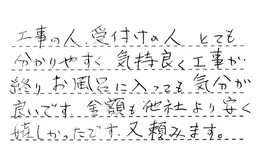 工事の人 受付けの人 とても
分かりやすく 気持良く工事が
終り お風呂に入っても 気分が
良いです 金額も他社より安く
嬉しかったです。又頼みます。